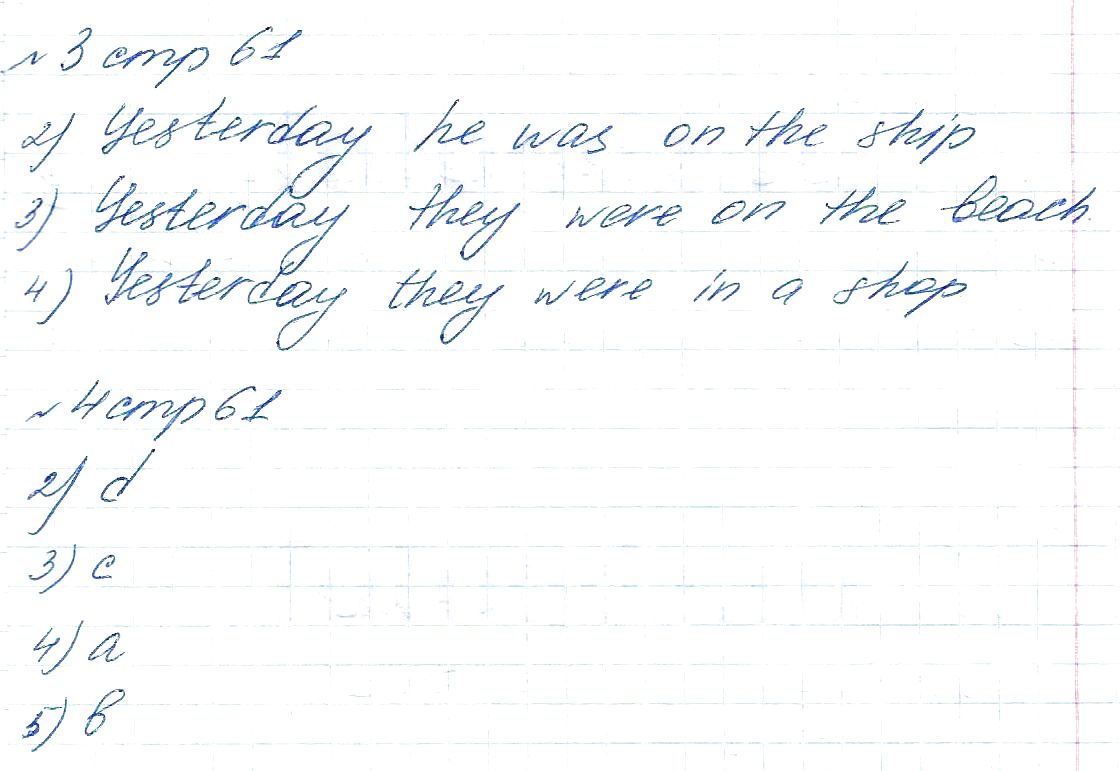 №3 стр 61
2) Yesterday he was on the ship
3) Yesterday they were on the beach.
4) Yesterday they were in a shop
№4 стр 61
2) d
3) c
4) a
5) b